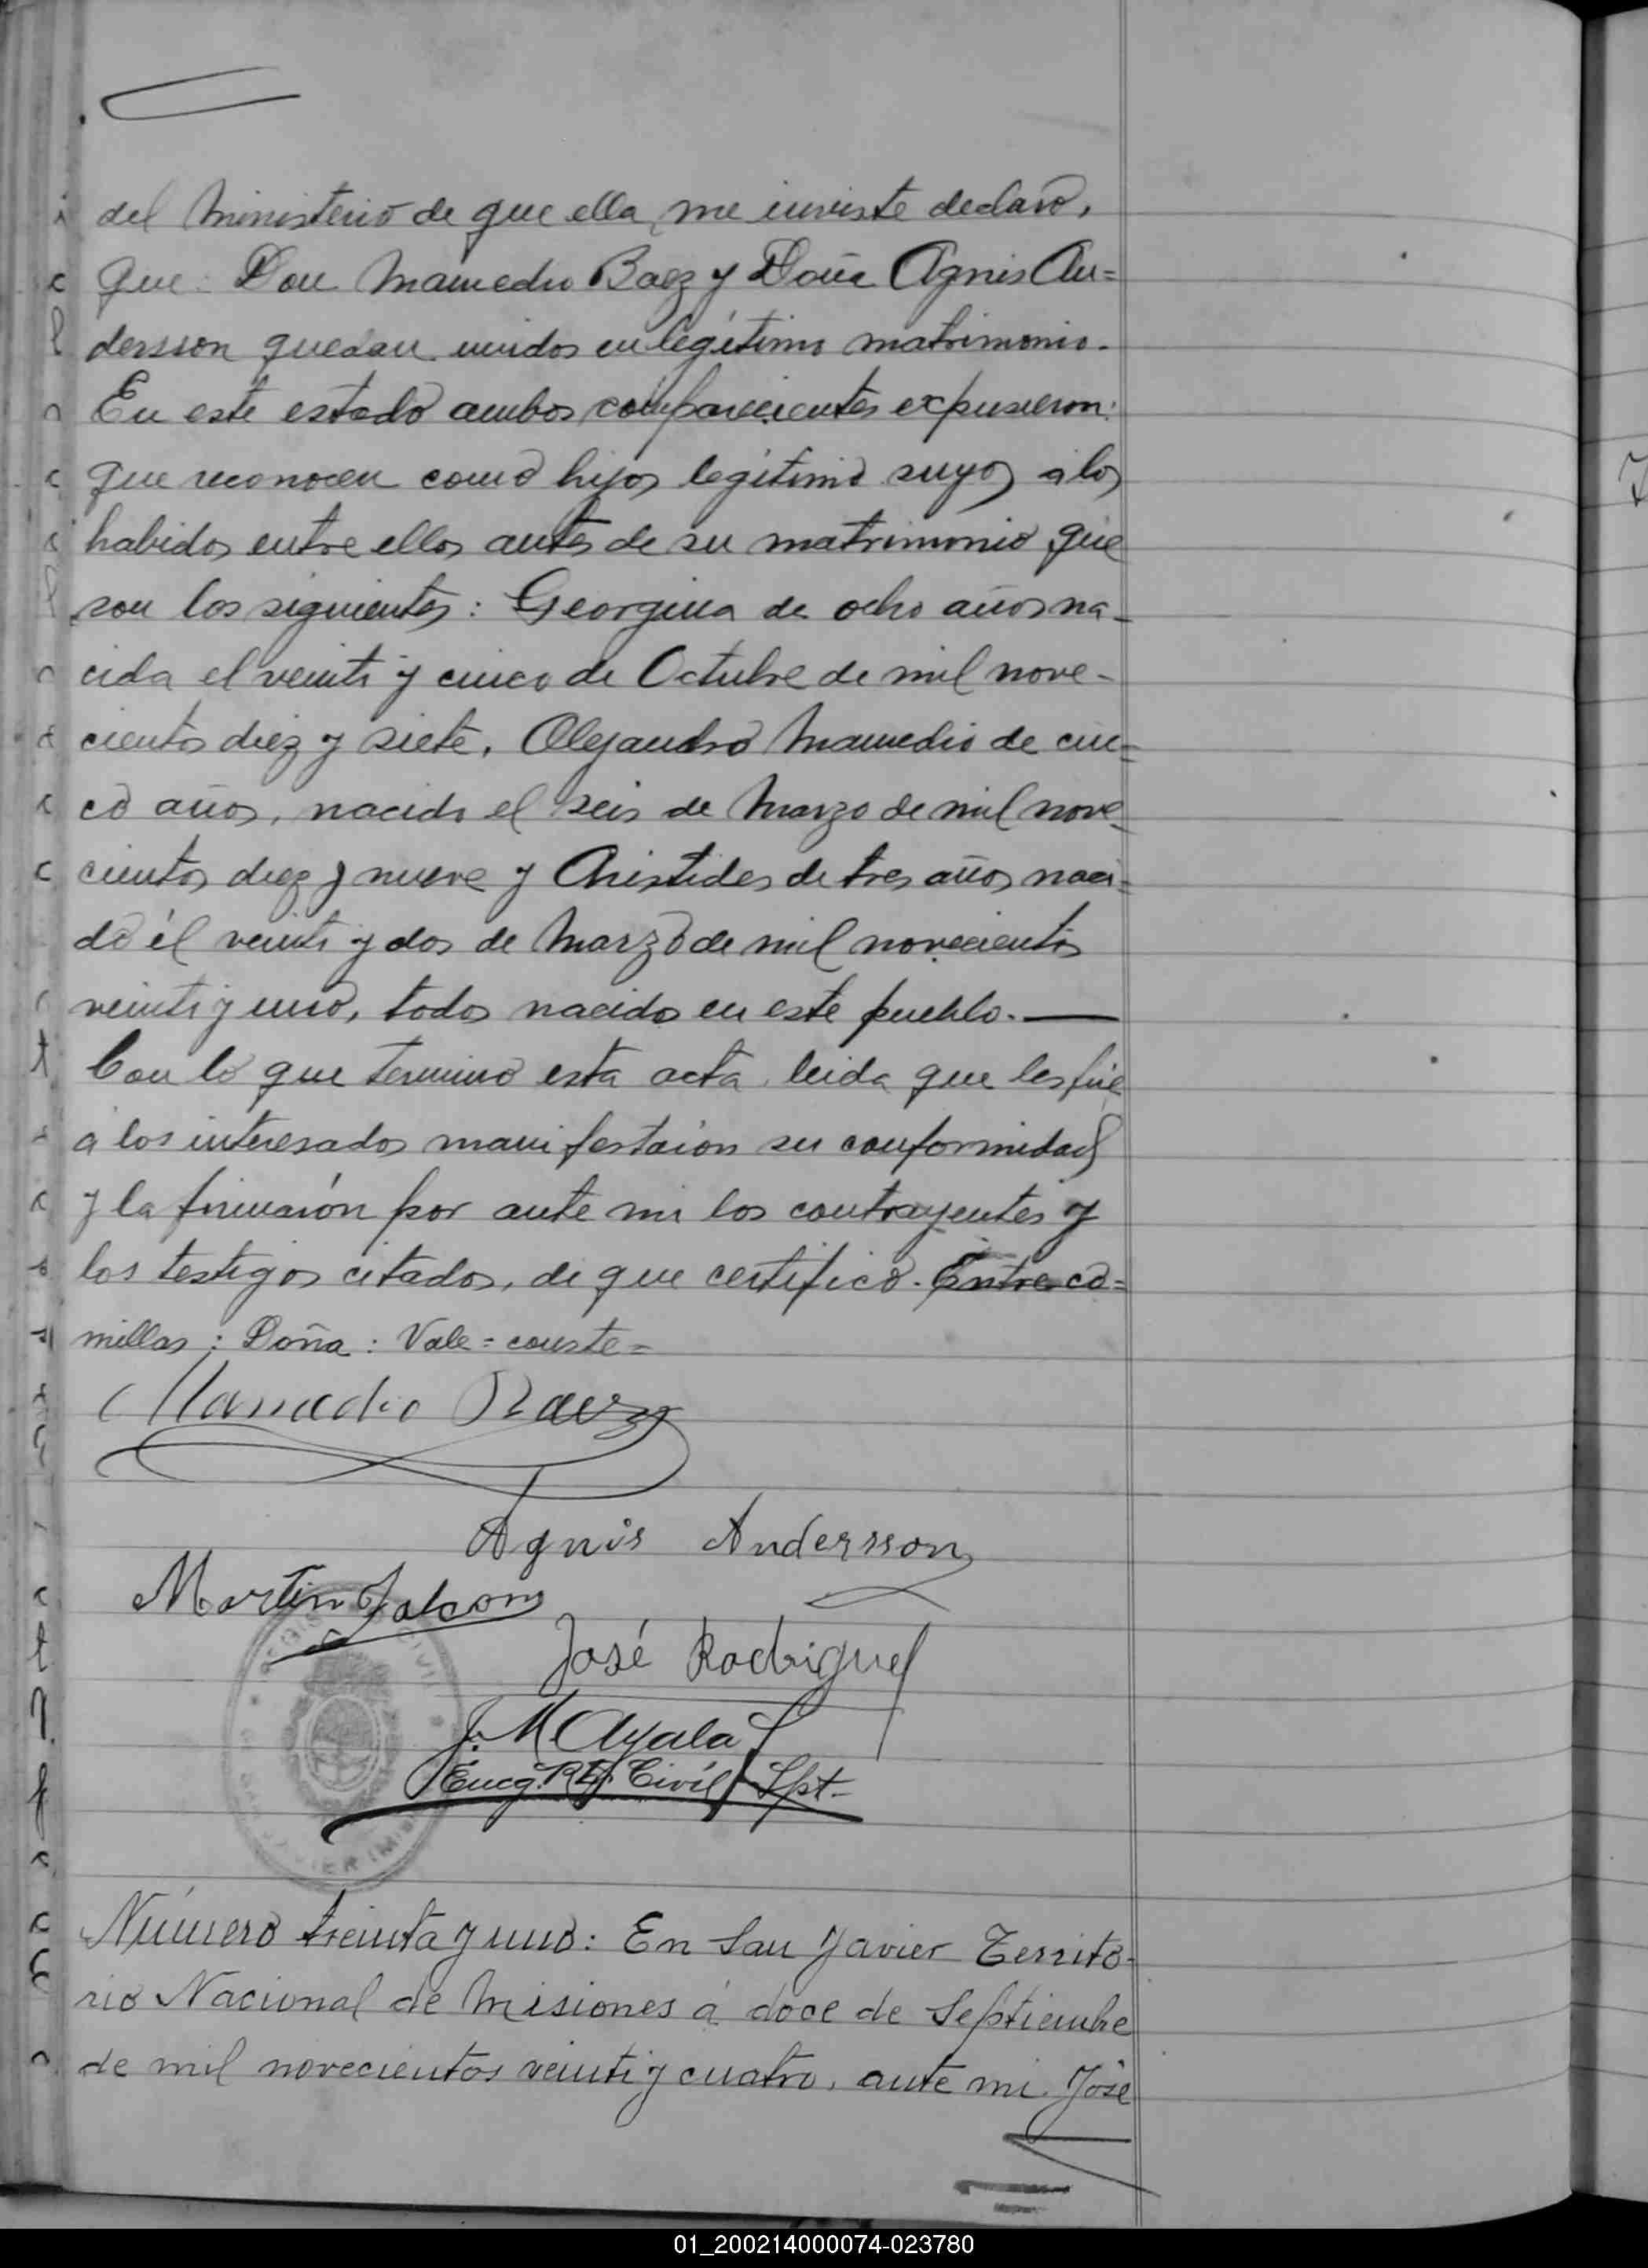 del Ministerio de que ella me inviste declaro,
que: Don Mamedio Baez y Doña Agnis An=
dersson quedan unidos en legítimo matrimonio.
En este estado ambos comparecientes expusieron:
que reconocen como hijos legítimo suyos a los
habidos entre ellos antes de su matrimonio que
son los siguientes: Georgina de ocho años na-
cida el veinti y cinco de Octubre de mil nove-
cientos diez y siete, Alejandro Mamedio de cin=
co años, nacido el seis de Marzo de mil nove-
cientos diez y nueve y Aristides de tres años naci=
do él veinti y dos de Marzo de mil novecientos
veinti y uno, todos nacidos en este pueblo. —
Con lo que termino esta acta leida que les fué
a los interesados manifestaron su conformidad
y la firmarón por ante mi los contrayentes y
los testigos citados, de que certifico. Entre co=
millas: Doña: Vale = conste =
Mamedio Baez
Agnis Andersson
Martin Falcon
José Rodriguez
J. M Ayala
Encg. Rg. Civil Spt-
Número treinta y uno: En San Javier Territo-
rio Nacional de Misiones á doce de Septiembre
de mil novecientos veinti y cuatro, ante mi José
01_200214000074-023780